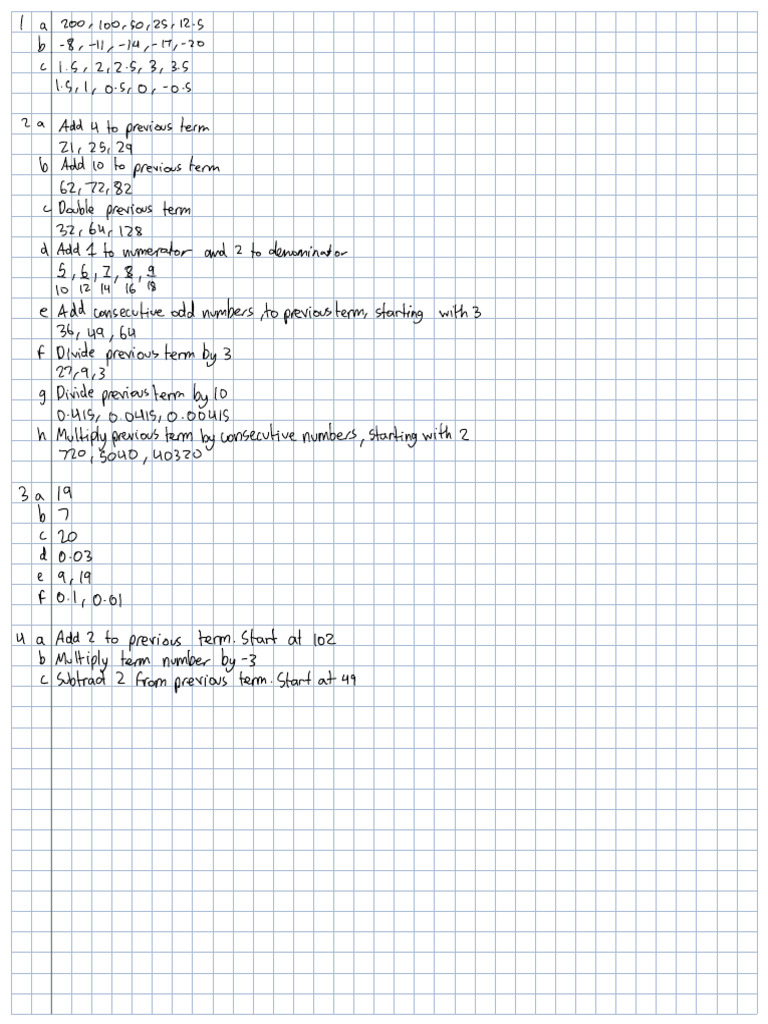 1 a 200, 100, 50, 25, 12.5
b -8, -11, -14, -17, -20
c 1.5, 2, 2.5, 3, 3.5
1.5, 1, 0.5, 0, -0.5
2 a Add 4 to previous term
21, 25, 29
b Add 10 to previous term
62, 72, 82
c Double previous term
32, 64, 128
d Add 1 to numerator and 2 to denominator
5/10, 6/12, 7/14, 8/16, 9/18
e Add consecutive odd numbers, to previous term, starting with 3
36, 49, 64
f Divide previous term by 3
27, 9, 3
g Divide previous term by 10
0.415, 0.0415, 0.00415
h Multiply previous term by consecutive numbers, starting with 2
720, 5040, 40320
3 a 19
b 7
c 20
d 0.03
e 9, 19
f 0.1, 0.01
4 a Add 2 to previous term. Start at 102
b Multiply term number by -3
c Subtract 2 from previous term. Start at 49